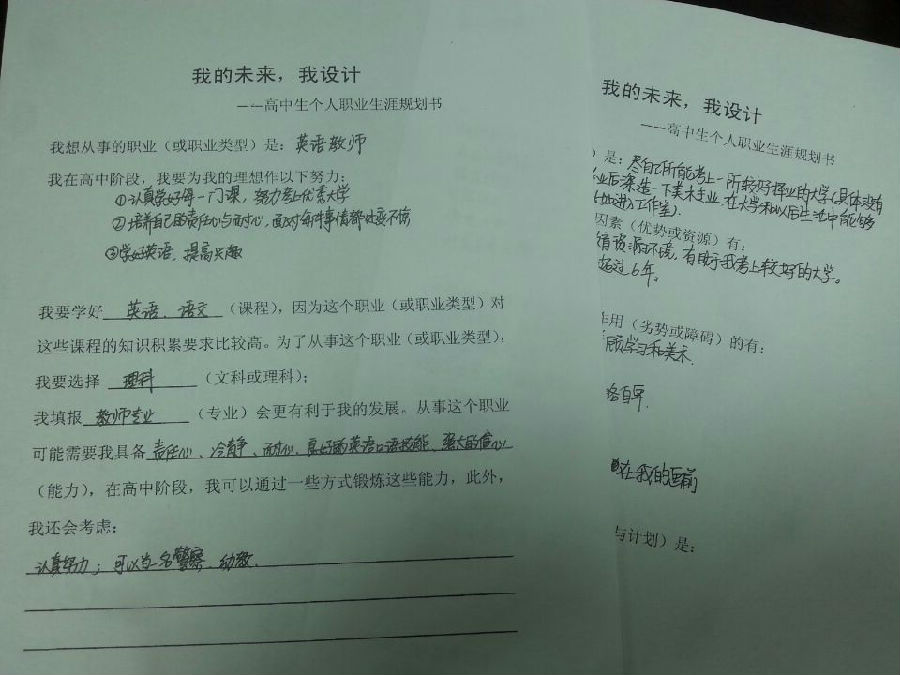 我的未来，我设计
——高中生个人职业生涯规划书
我想从事的职业（或职业类型）是：英语教师
我在高中阶段，我要为我的理想作以下努力：
①认真学好每一门课，努力考上优秀大学
②培养自己的责任心与耐心，面对任何事情都处变不惊
③学好英语，提高兴趣
我要学好 英语、语文 （课程），因为这个职业（或职业类型）对
这些课程的知识积累要求比较高。为了从事这个职业（或职业类型），
我要选择 理科 （文科或理科）；
我填报 教师专业 （专业）会更有利于我的发展。从事这个职业
可能需要我具备 责任心、冷静、耐心、良好的英语口语技能、强大的信心
（能力），在高中阶段，我可以通过一些方式锻炼这些能力，此外，
我还会考虑：
认真努力；可以当一名警察、幼教.
我的未来，我设计
——高中生个人职业生涯规划书
）是：尽自己所能考上一所较好择业的大学（具体没有
业后深造一下美术专业，在大学和以后生活中能够
进入工作室）.
因素（优势或资源）有：
环境，有助于我考上较好的大学。
超过6年。
作用（劣势或障碍）的有：
顾学习和美术.
在我的面前
与计划）是：